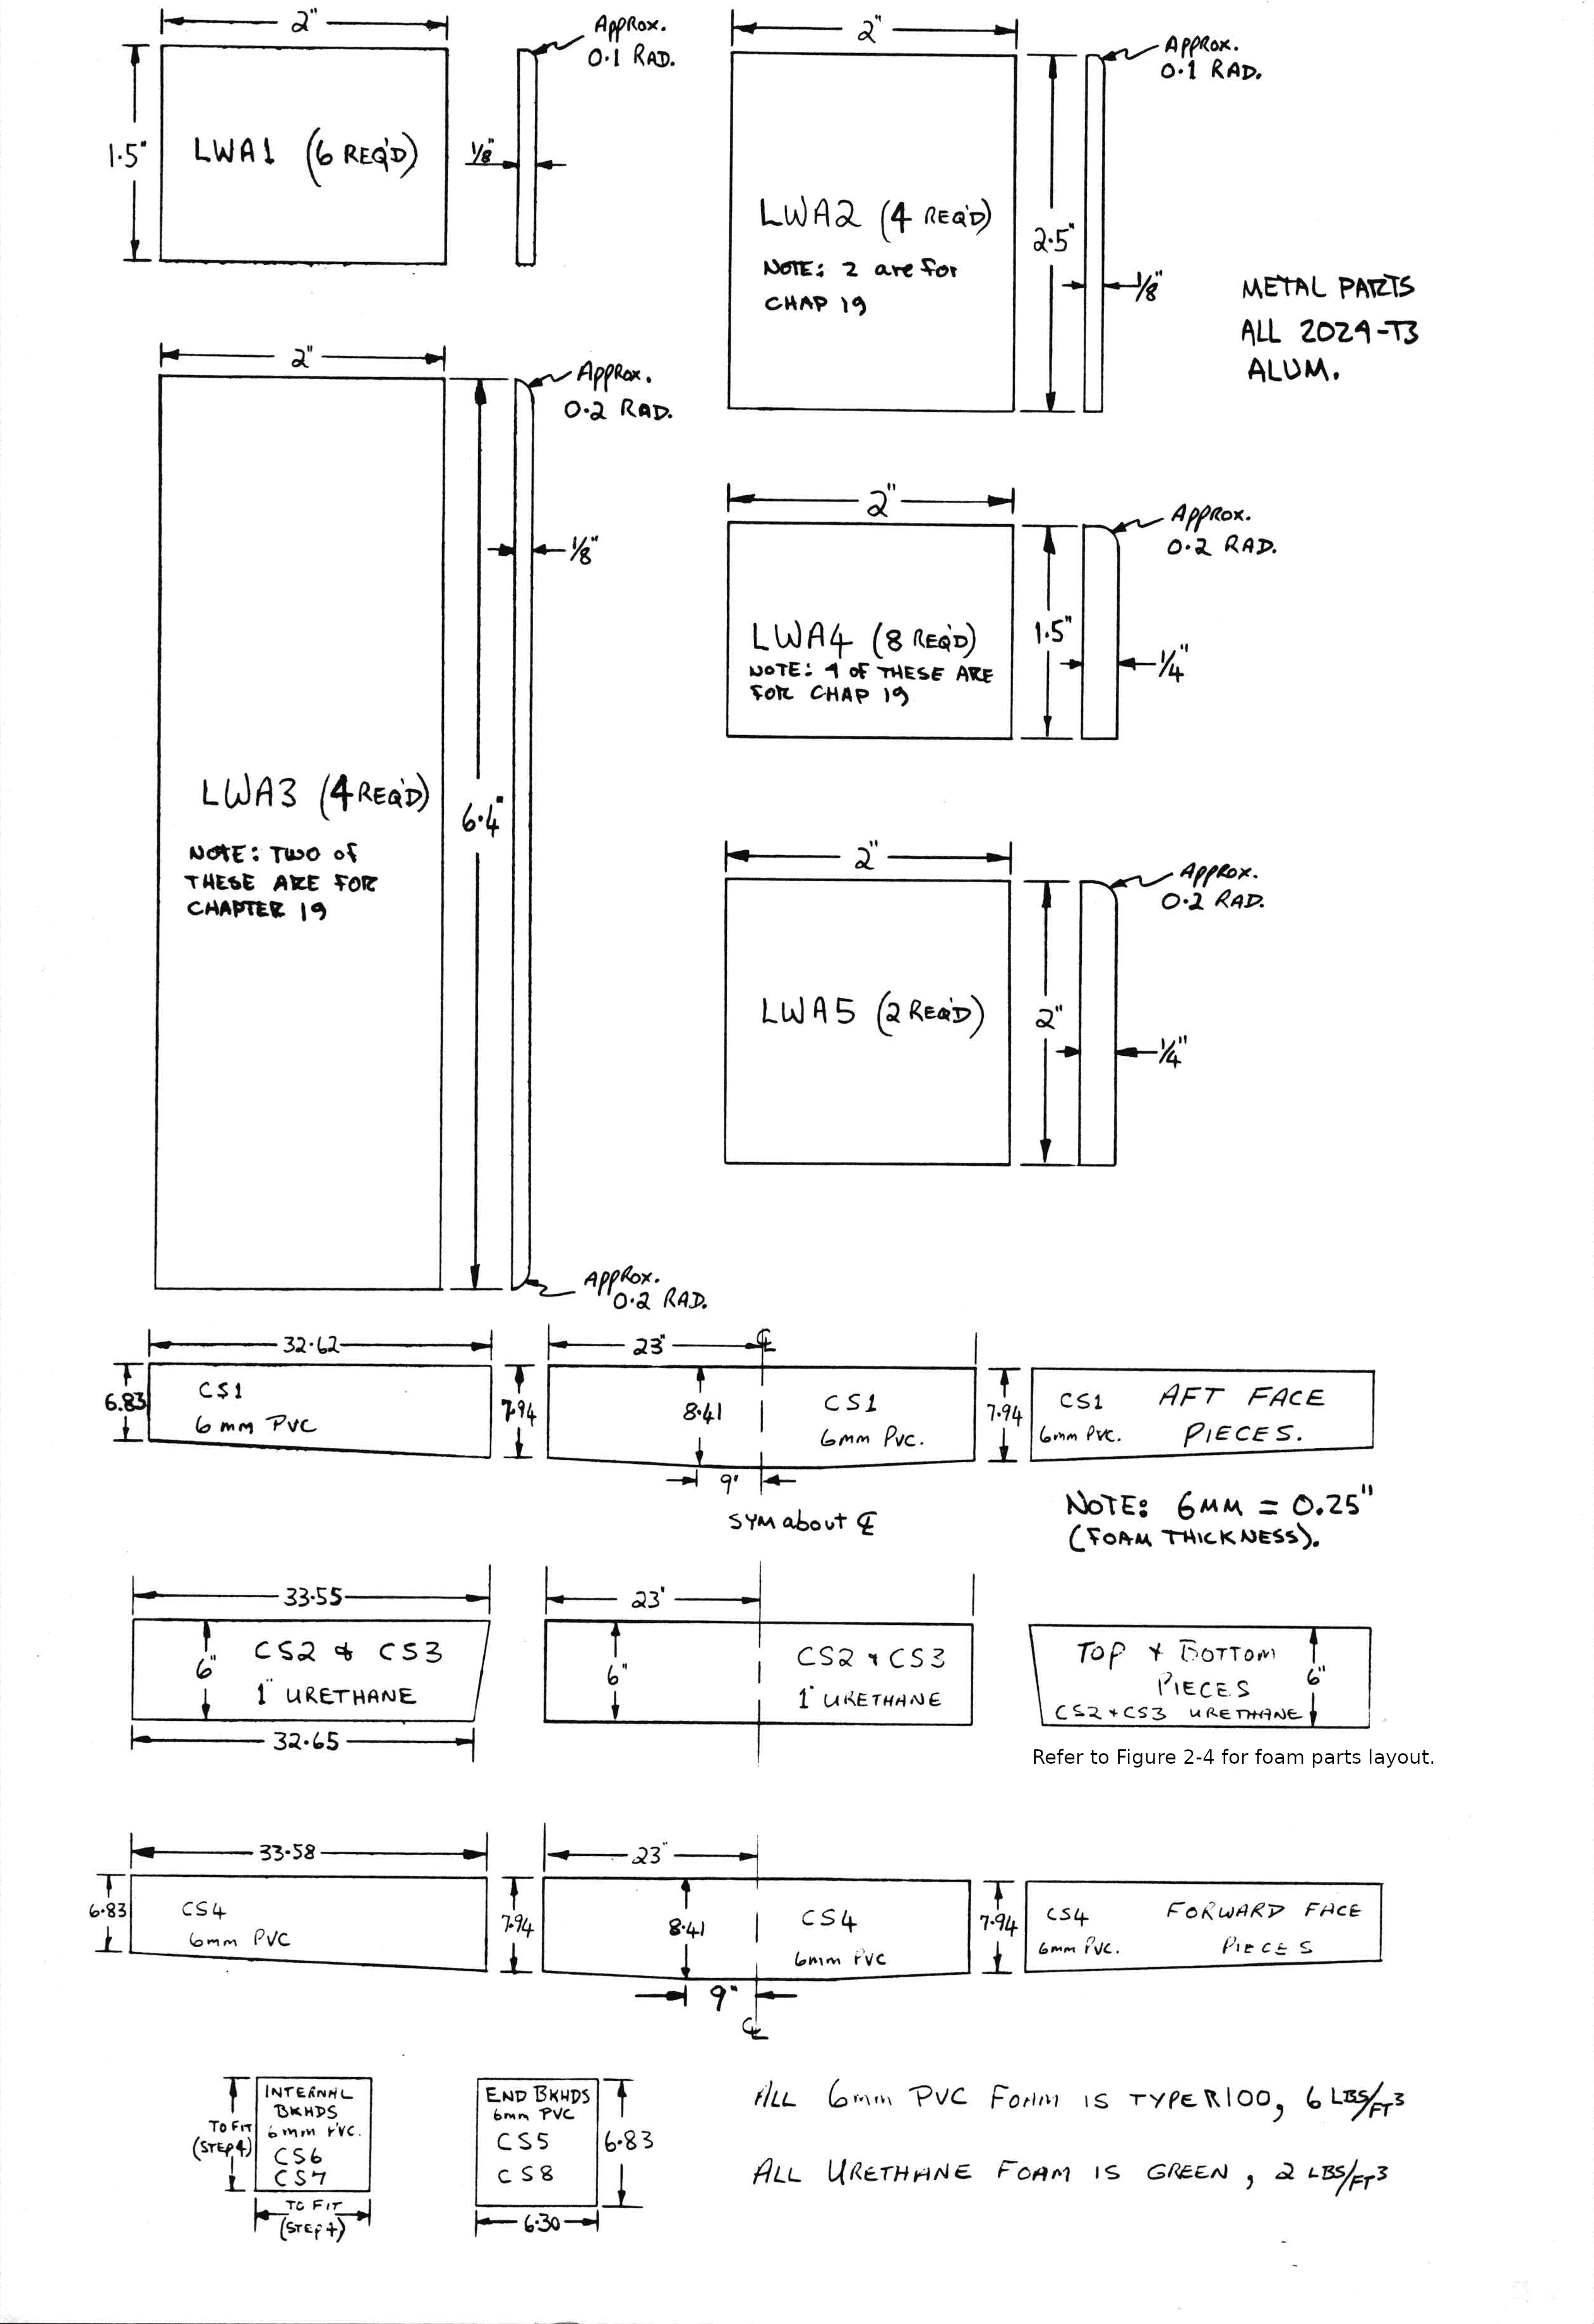 2"
Approx.
0.1 RAD.
1.5"
LWA1 (6 REQ'D)
1/8"
2"
Approx.
0.1 RAD.
LWA2 (4 REQ'D)
NOTE: 2 are for
CHAP 19
2.5"
1/8"
METAL PARTS
ALL 2024-T3
ALUM.
2"
Approx.
0.2 RAD.
1/8"
LWA3 (4 REQ'D)
NOTE: TWO of
THESE ARE FOR
CHAPTER 19
6.4"
Approx.
0.2 RAD.
2"
Approx.
0.2 RAD.
LWA4 (8 REQ'D)
NOTE: 4 OF THESE ARE
FOR CHAP 19
1.5"
1/4"
2"
Approx.
0.2 RAD.
LWA5 (2 REQ'D)
2"
1/4"
32.62
6.83
CS1
6mm PVC
7.94
23"
℄
8.41
CS1
6mm PVC.
9"
SYM about ℄
7.94
CS1
6mm PVC.
AFT FACE
PIECES.
NOTE: 6MM = 0.25"
(FOAM THICKNESS).
33.55
6"
CS2 & CS3
1" URETHANE
32.65
23"
6"
CS2 & CS3
1" URETHANE
TOP & BOTTOM
PIECES
CS2 & CS3 URETHANE
6"
Refer to Figure 2-4 for foam parts layout.
33.58
6.83
CS4
6mm PVC
7.94
23"
8.41
CS4
6mm PVC
9"
℄
7.94
CS4
6mm PVC.
FORWARD FACE
PIECES
INTERNAL
BKHDS
6mm PVC.
CS6
CS7
TO FIT
(STEP 4)
TO FIT
(STEP 4)
END BKHDS
6mm PVC
CS5
CS8
6.83
6.30
ALL 6mm PVC FOAM IS TYPE R100, 6 LBS/FT³
ALL URETHANE FOAM IS GREEN, 2 LBS/FT³